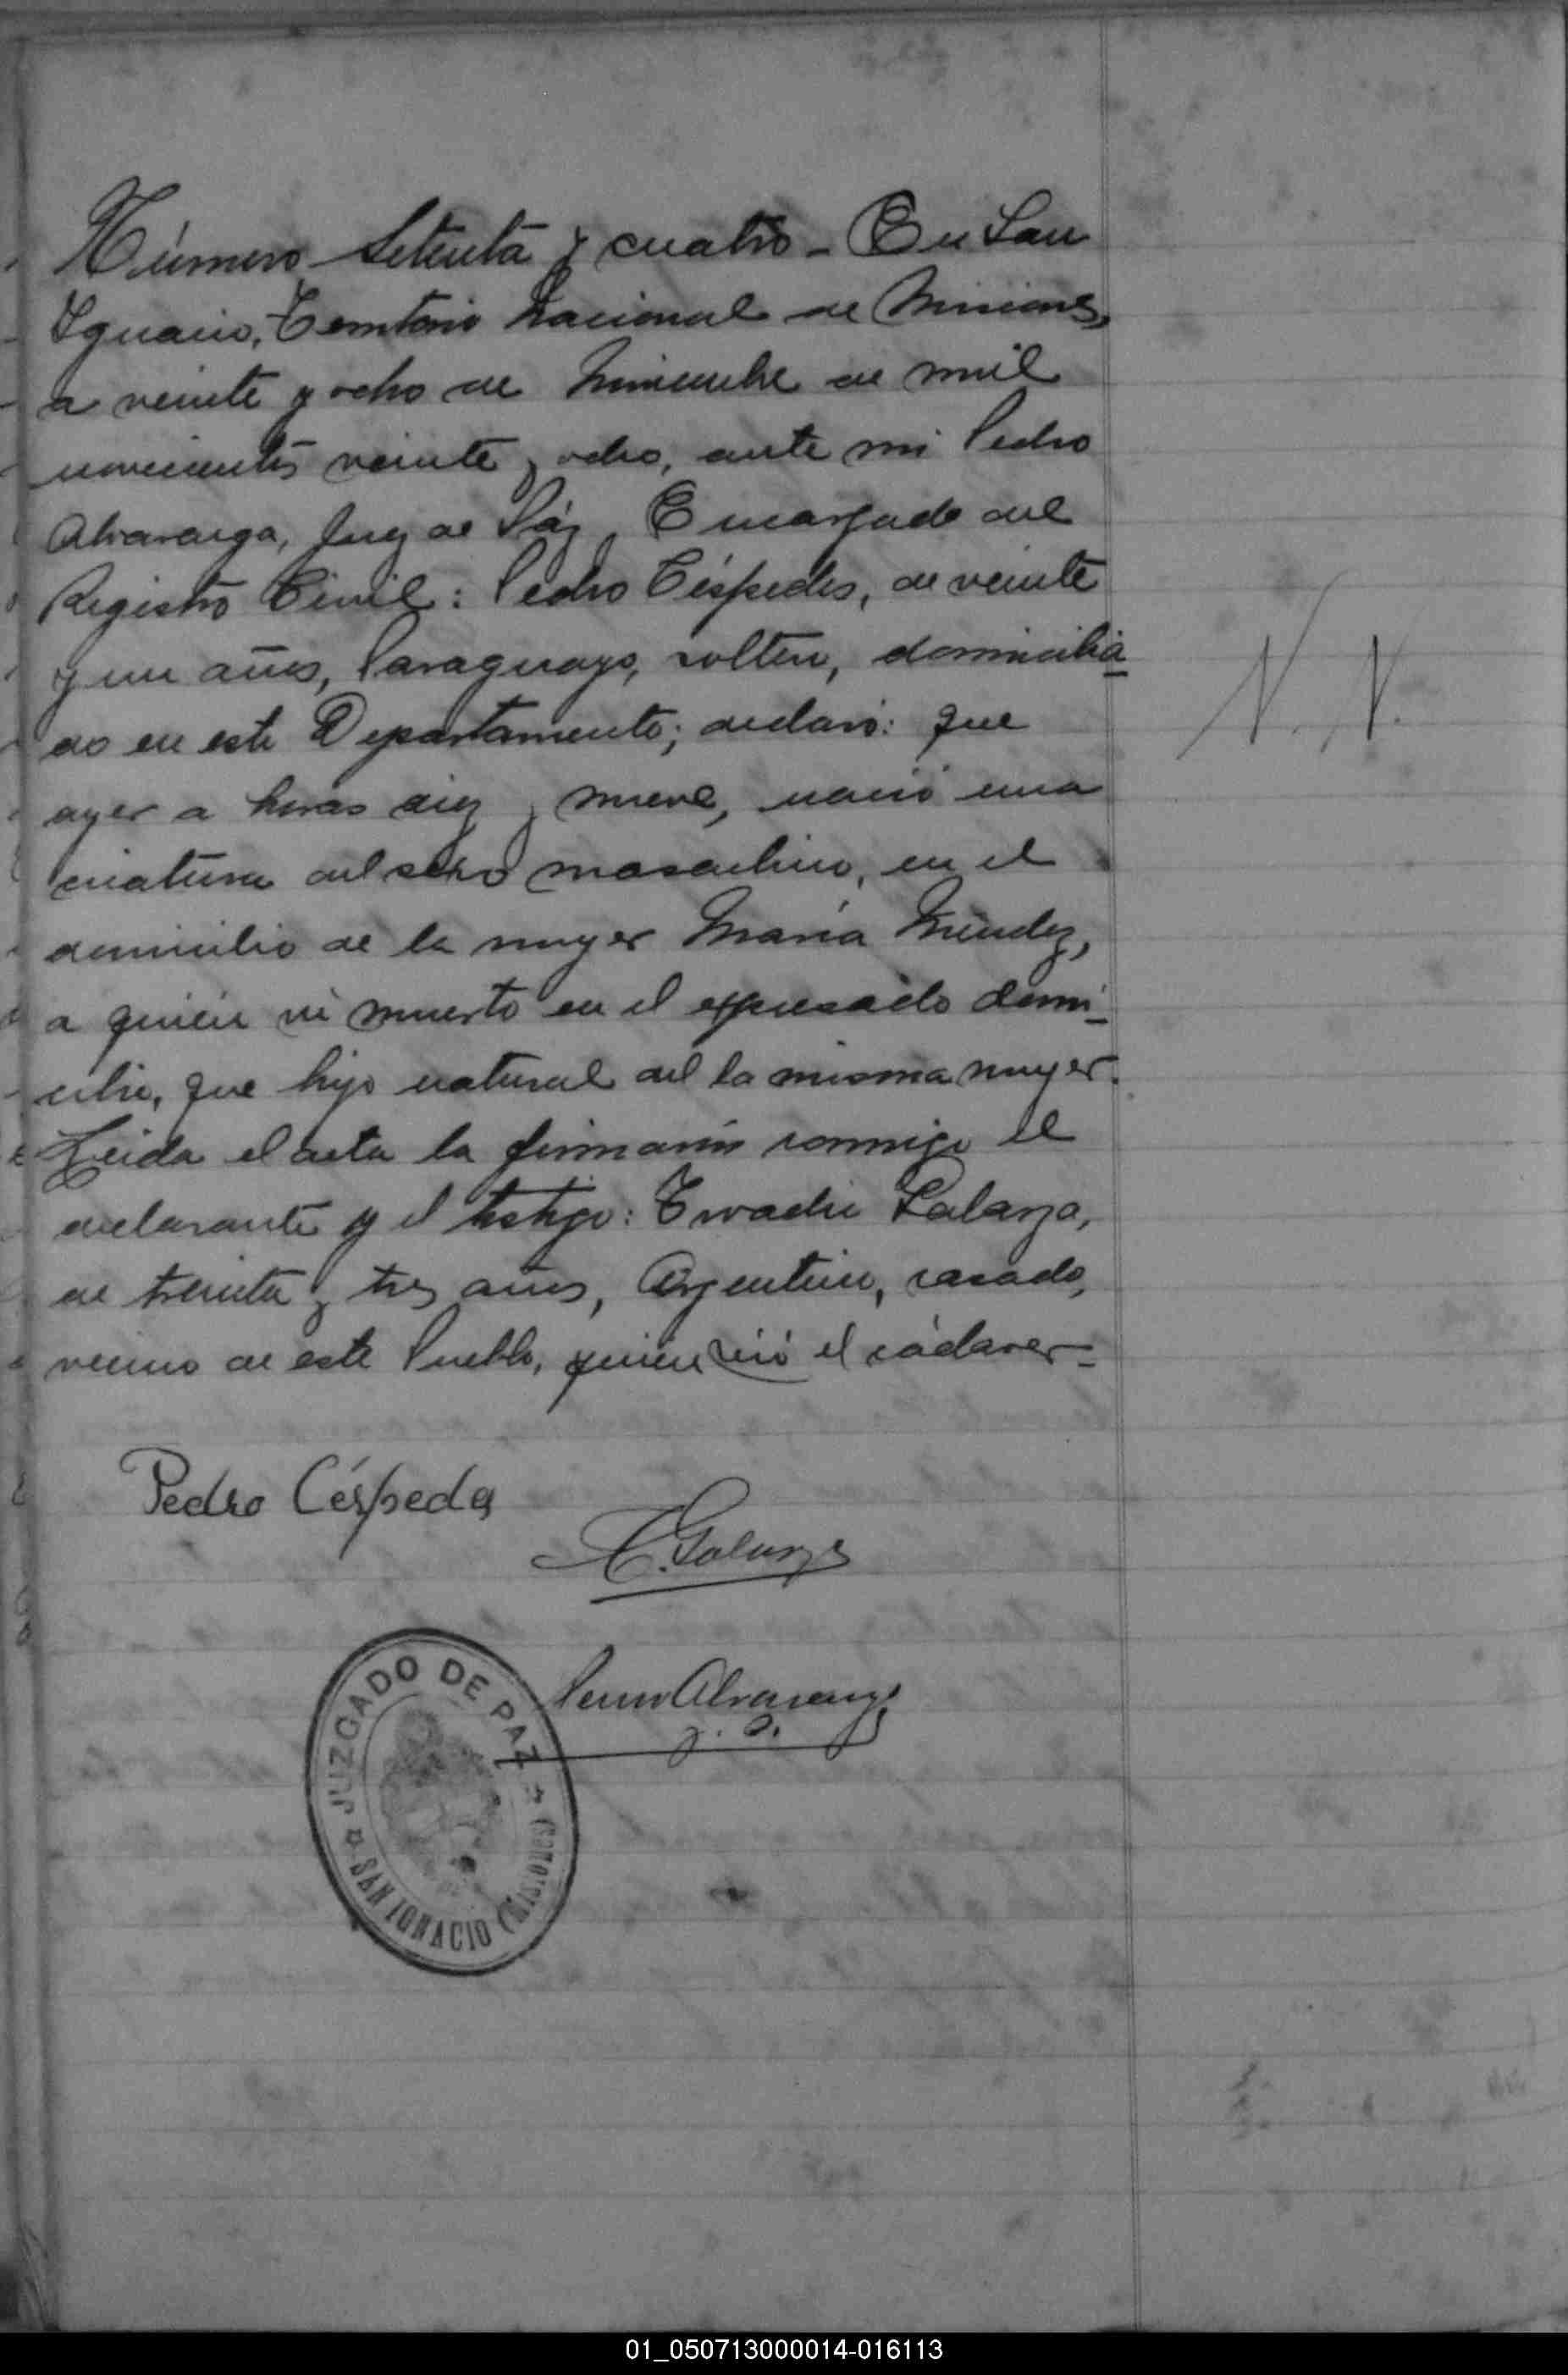 Número Setenta y cuatro - En San
Ignacio, Territorio Nacional de Misiones,
a veinte y ocho de Noviembre de mil
novecientos veinte y ocho, ante mi Pedro
Alvarenga, Juez de Páz, Encargado del
Registro Civil: Pedro Céspedes, de veinte
y un años, Paraguayo, soltero, domicilia
do en este Departamento; declaró: que
N. N.
ayer a horas diez y nueve, nació una
criatura del sexo masculino, en el
domicilio de la muyer María Méndez,
a quién vi muerto en el expresado domi
cilio, que hijo natural del la misma muyer.
Leida el acta la firmaron conmigo el
declarante y el testigo: Galarza,
de treinta y tres años, Argentino, casado,
vecino de este Pueblo, quién vió el cádaver-
Pedro Céspedes
Galarza
Pedro Alvarenga
J. P.
JUZGADO DE PAZ
SAN IGNACIO (MISIONES)
01_050713000014-016113